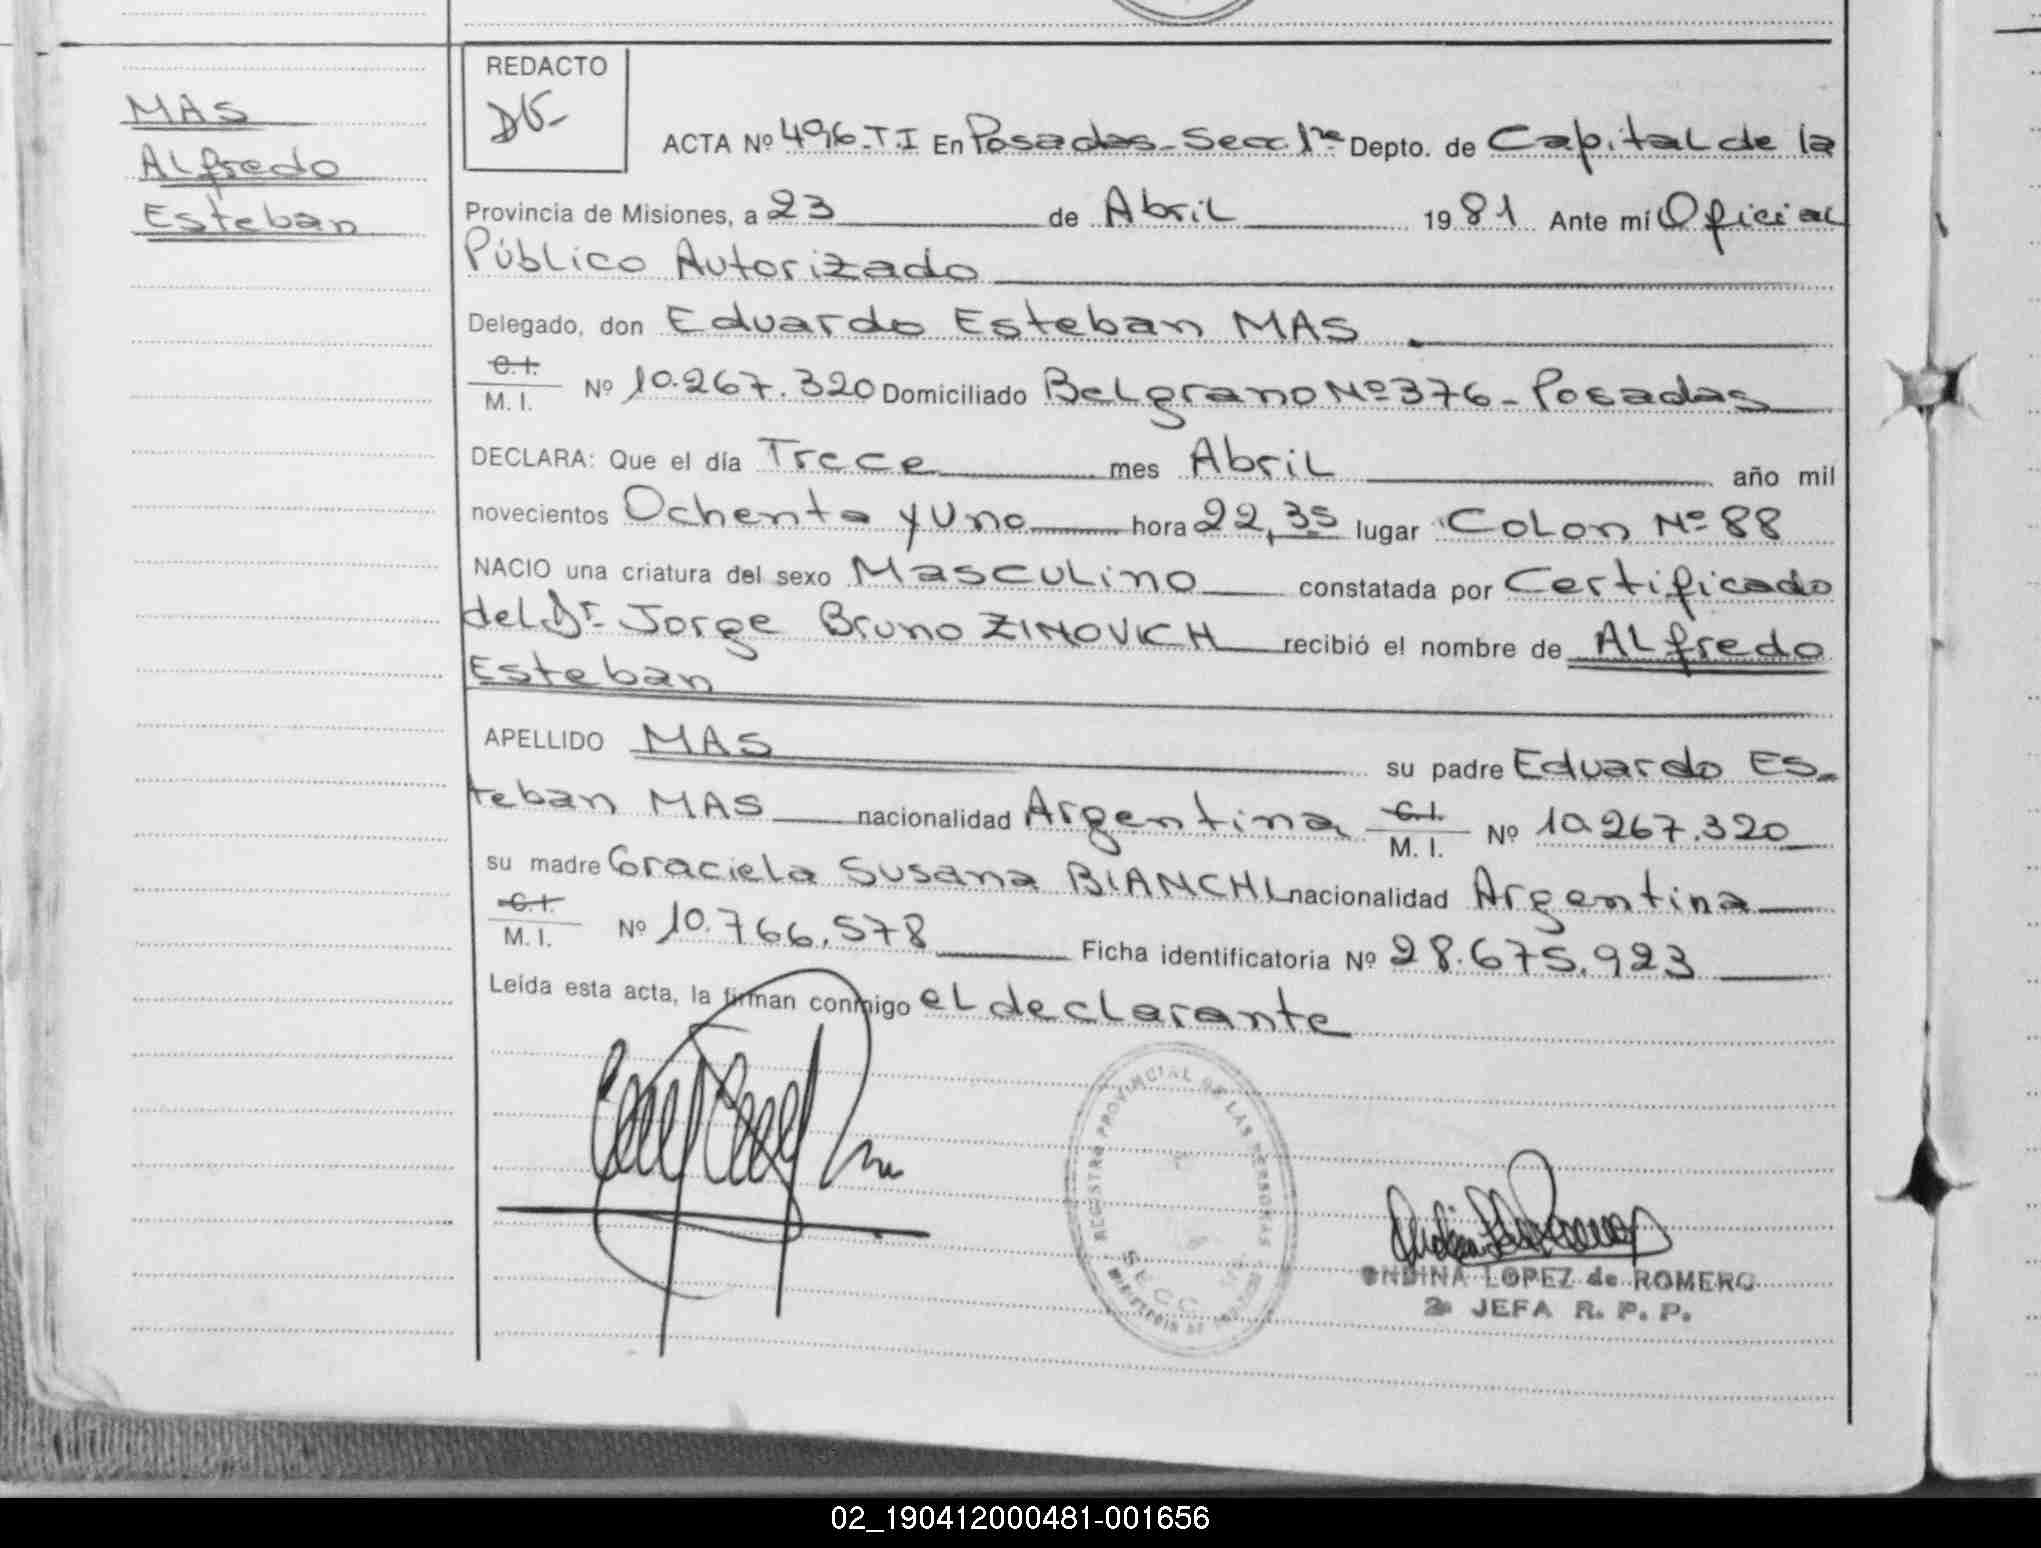 MAS
Alfredo
Esteban
REDACTO
ACTA Nº 496-T.I En Posadas - Secc 1ra Depto. de Capital de la
Provincia de Misiones, a 23 de Abril 1981 Ante mí Oficial
Público Autorizado
Delegado, don Eduardo Esteban MAS
C.I.
M. I. Nº 10.267.320 Domiciliado Belgrano Nº 376 - Posadas
DECLARA: Que el día Trece mes Abril año mil
novecientos Ochenta y Uno hora 22,35 lugar Colon Nº 88
NACIO una criatura del sexo Masculino constatada por Certificado
del Dr. Jorge Bruno ZINOVICH recibió el nombre de Alfredo
Esteban
APELLIDO MAS su padre Eduardo Es-
teban MAS nacionalidad Argentina C.I.
M. I. Nº 10.267.320
su madre Graciela Susana BIANCHI nacionalidad Argentina
C.I.
M. I. Nº 10.766.578 Ficha identificatoria Nº 28.675.923
Leída esta acta, la firman conmigo el declarante
REGISTRO PROVINCIAL DE LAS PERSONAS
SECC.
MINISTERIO DE
ONDINA LOPEZ de ROMERO
2a JEFA R. P. P.
02_190412000481-001656